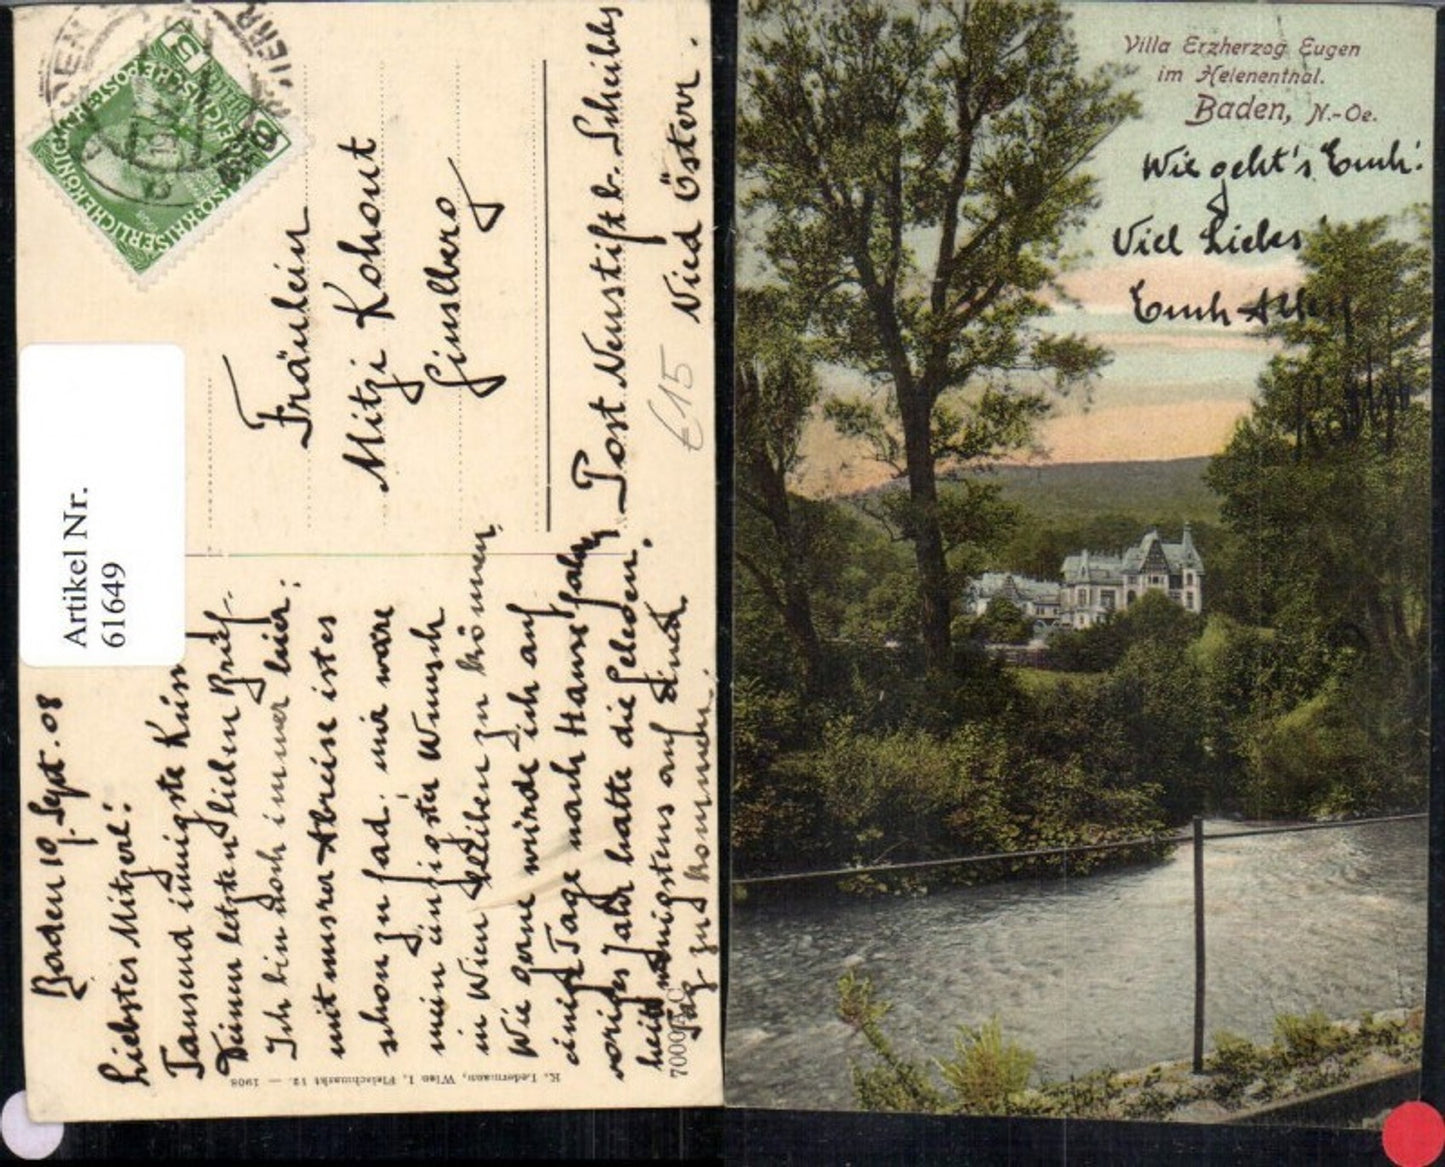 Artikel Nr.
61649
Fräulein
Mitzi Kohout
Ginselberg
Post Neustift b. Scheibbs
Nied Österr.
€15
Baden 19. Sept. 08
Liebstes Mitzerl!
Tausend innigste
Deinen letzten lieben Brief.
Ich bin doch immer hier;
mit unsrer Abreise ist es
schon zu fad. mir wäre
mein einzigster Wunsch
in Wien bleiben zu können.
Wie gerne würde ich auf
einige Tage nach Haus fahren
voriges Jahr hatte die
wenigstens auf einen
Tag zu kommen.
K. Ledermann, Wien I, Fleischmarkt 12. — 1908
Villa Erzherzog Eugen
im Helenenthal.
Baden, N.-Oe.
Wie geht's Euch!
Viel Liebes
Euch Allen